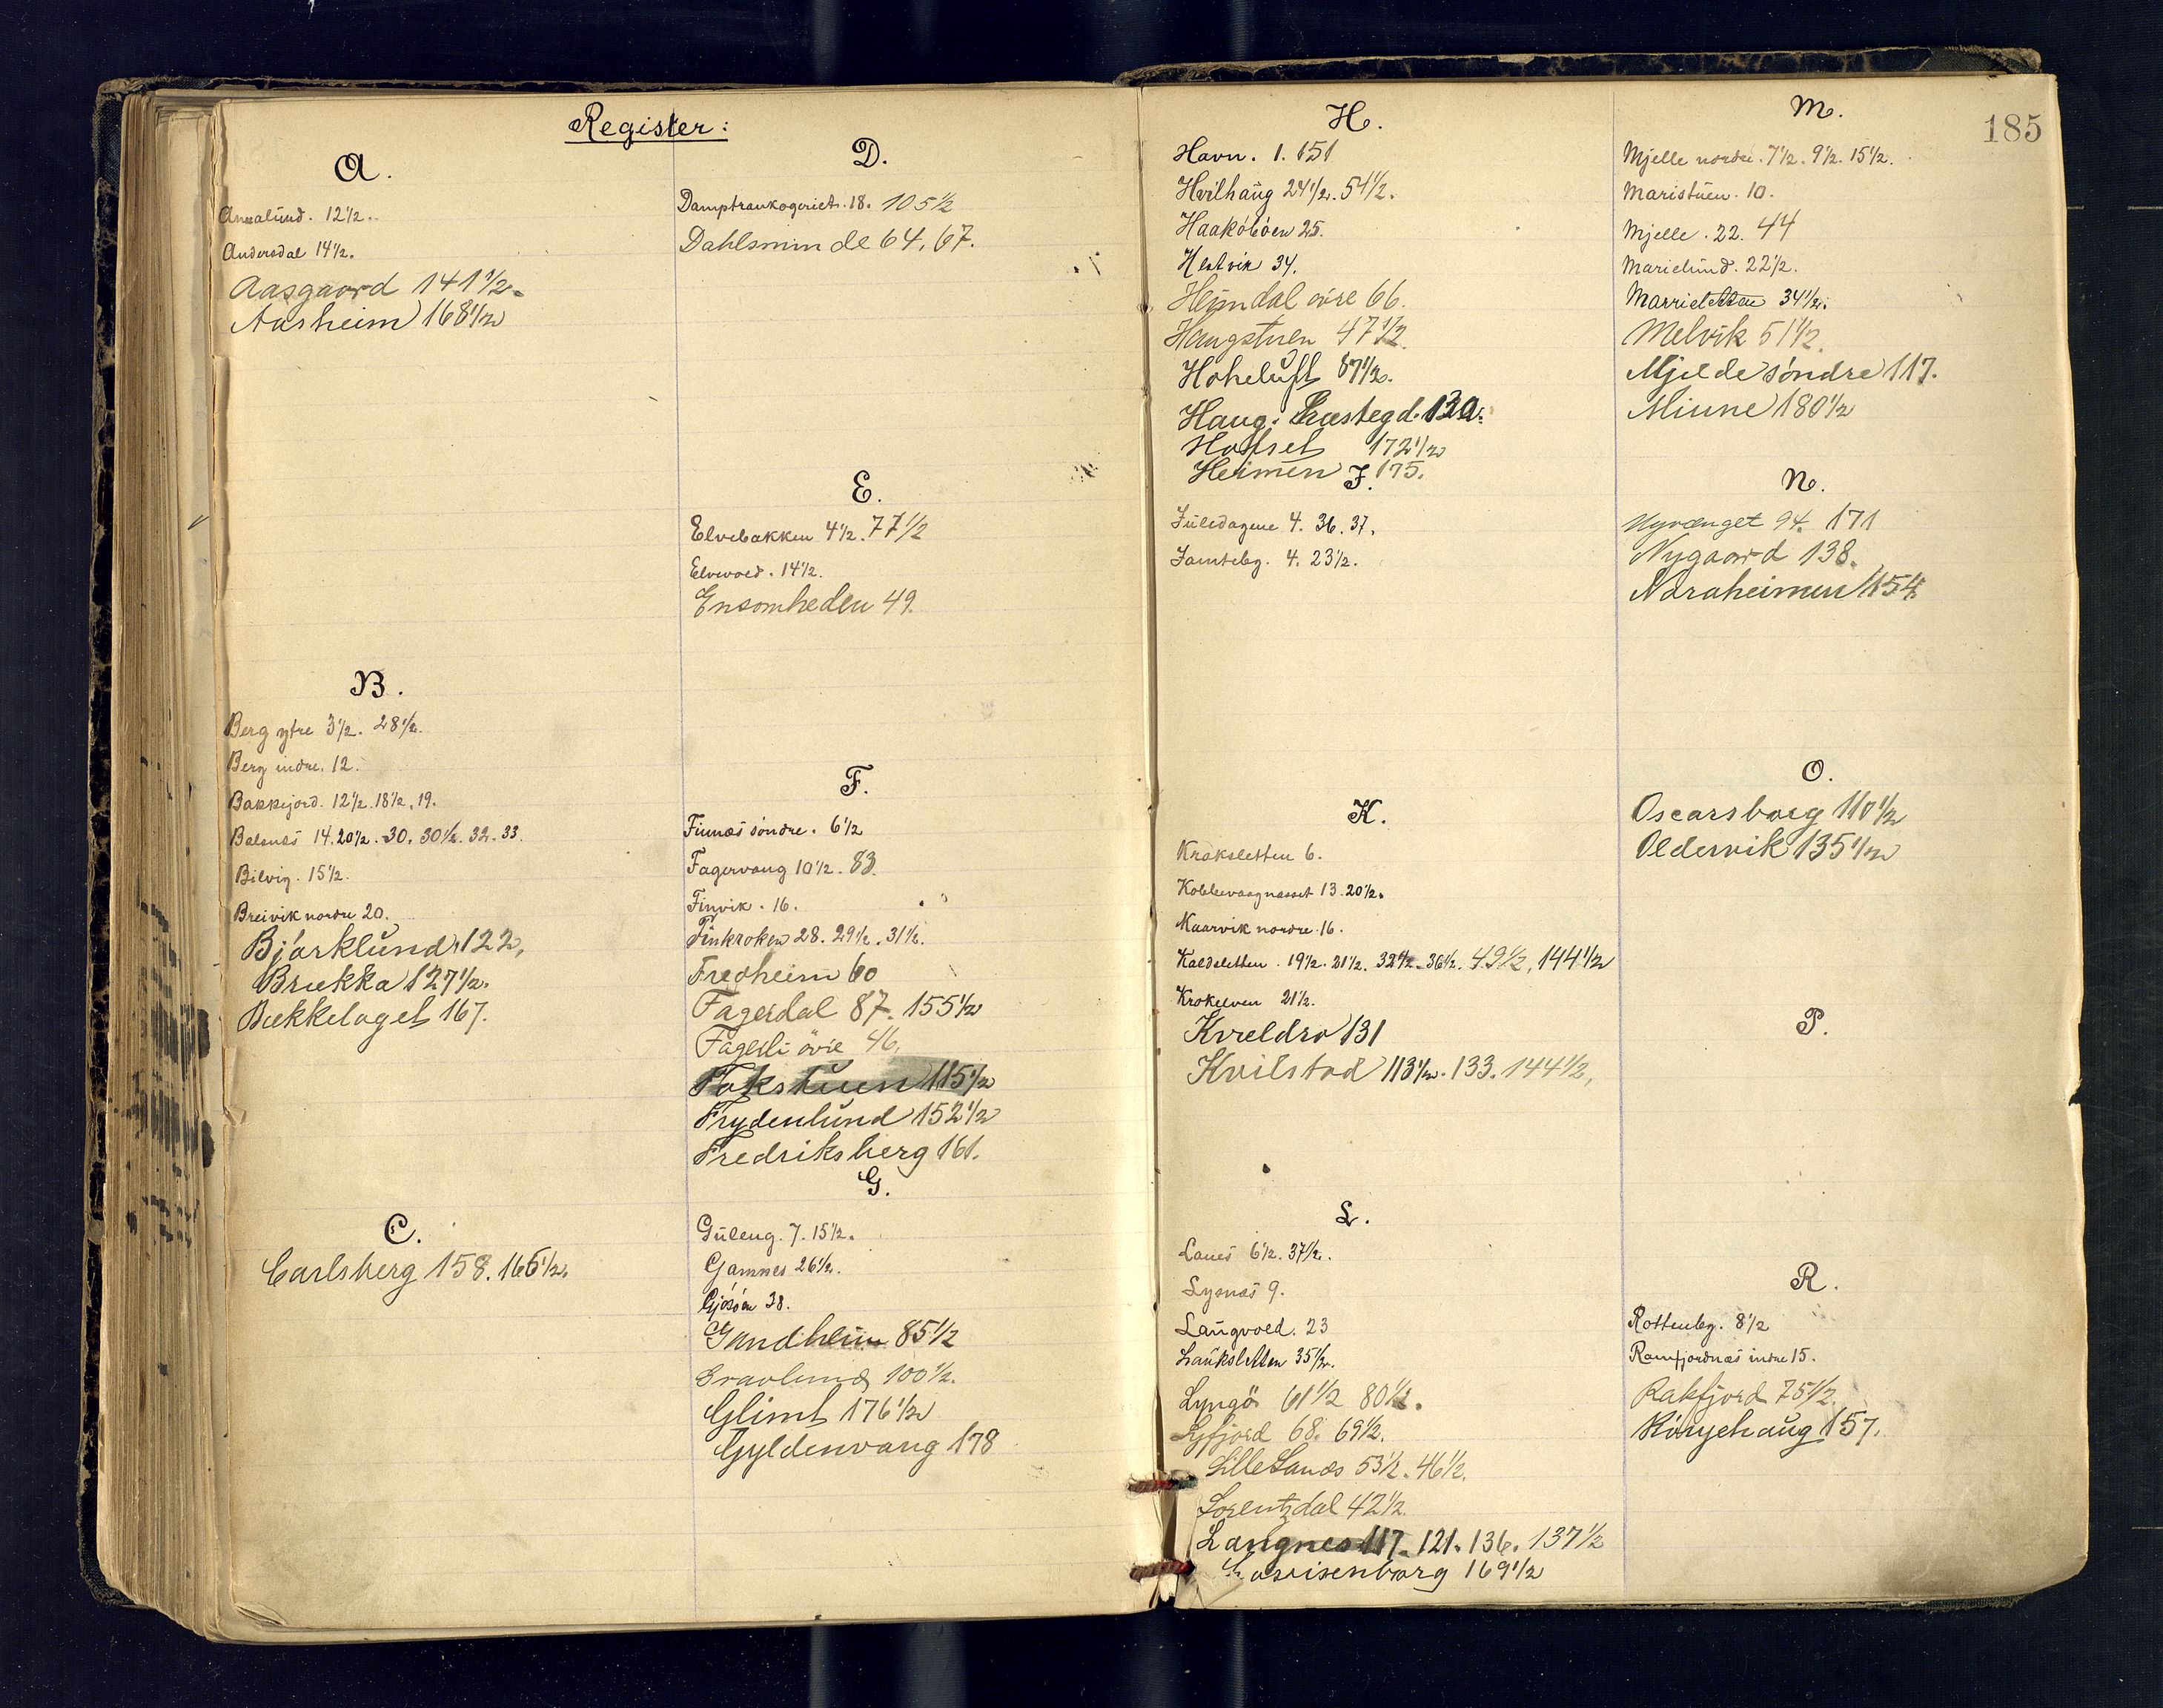 Register:
A.
Annalünd. 12½.
Andersdal 14½.
Aasgaard 141½.
Aasheim 168½
B.
Berg ytre 3½. 28½.
Berg indre. 12.
Bakkejord. 12½. 18½. 19.
Balsnæs 14. 20½. 30. 30½. 32. 33.
Bilvig. 15½.
Breivik nordre 20.
Bjørklünd 122.
Brekka 127½.
Bækkelaget 167.
C.
Carlsberg 158. 165½.
D.
Damptrankogeriet. 18. 105½
Dahlsminde 64, 67.
E.
Elvebakken 4½. 77½
Elvevold. 14½.
Ensomheden 49.
F.
Finnæs söndre. 6½
Fagervang 10½. 83.
Finvik. 16.
Finkroken 28. 29½. 31½.
Fredheim 60
Fagerdal 87. 155½
Fagerli övre 46.
Fokstuen 115½
Frydenlünd 152½
Fredriksberg 161.
G.
Güleng. 7. 15½.
Gamnes 26½.
Gjösöen 38.
Grandheim 85½
Gravlund 100½.
Glimt 176½
Gyldenvang 178
185
H.
Havn. 1. 151
Hvilhaüg 24½. 54½.
Haaköböen 25.
Hestvik 34.
Heimdal övre 66.
Haugstuen 47½
Hoheluft 87½.
Haug: Præstegd. 130.
Hofset 172½
Heimen 175.
J.
Jüledagene 4. 36. 37.
Jamtebg. 4. 23½.
K.
Kroksletten 6.
Kobbevaagnæsset 13. 20½.
Kaarvik nordre. 16.
Kaldsletten. 19½. 21½. 32½. 36½. 49½, 144½
Krokelven 21½.
Kveldro 131
Kvilstad 113½. 133. 144½,
L.
Lanes 6½. 37½.
Lysnæs 9.
Langvold. 23
Lauksletten 35½.
Lyngö 61½ 80½.
Lyfjord 68. 69½.
Lille Lanæs 53½. 46½.
Lorentzdal 42½.
Langnes 117. 121. 136. 137½
Lovisenborg 169½
M.
Mjelle nordre. 7½. 9½. 15½.
Maristüen. 10.
Mjelle. 22. 44
Marielünd. 22½.
Marrieletten 34½.
Melvik 51½.
Mjelde söndre 117.
Minne 180½
N.
Nyvænget 94. 171
Nygaard 138.
Noraheimen 154.
O.
Oscarsborg 110½
Oldervik 135½
P.
R.
Rottenbg. 8½
Ramfjordnæs indre 15.
Rakfjord 75½.
Rörgehaüg 157.